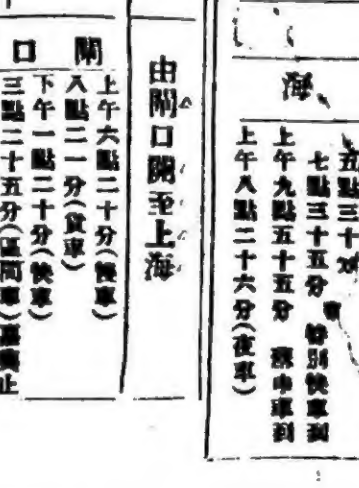 海
五點三十分
七點三十五分 特別快車到
上午九點五十五分 蘇申車到
上午八點二十六分(夜車)
由閘口開至上海
閘口
上午六點二十分(慢車)
八點二一分(貨車)
下午一點二十分(快車)
三點二十五分(區間車)嘉興止